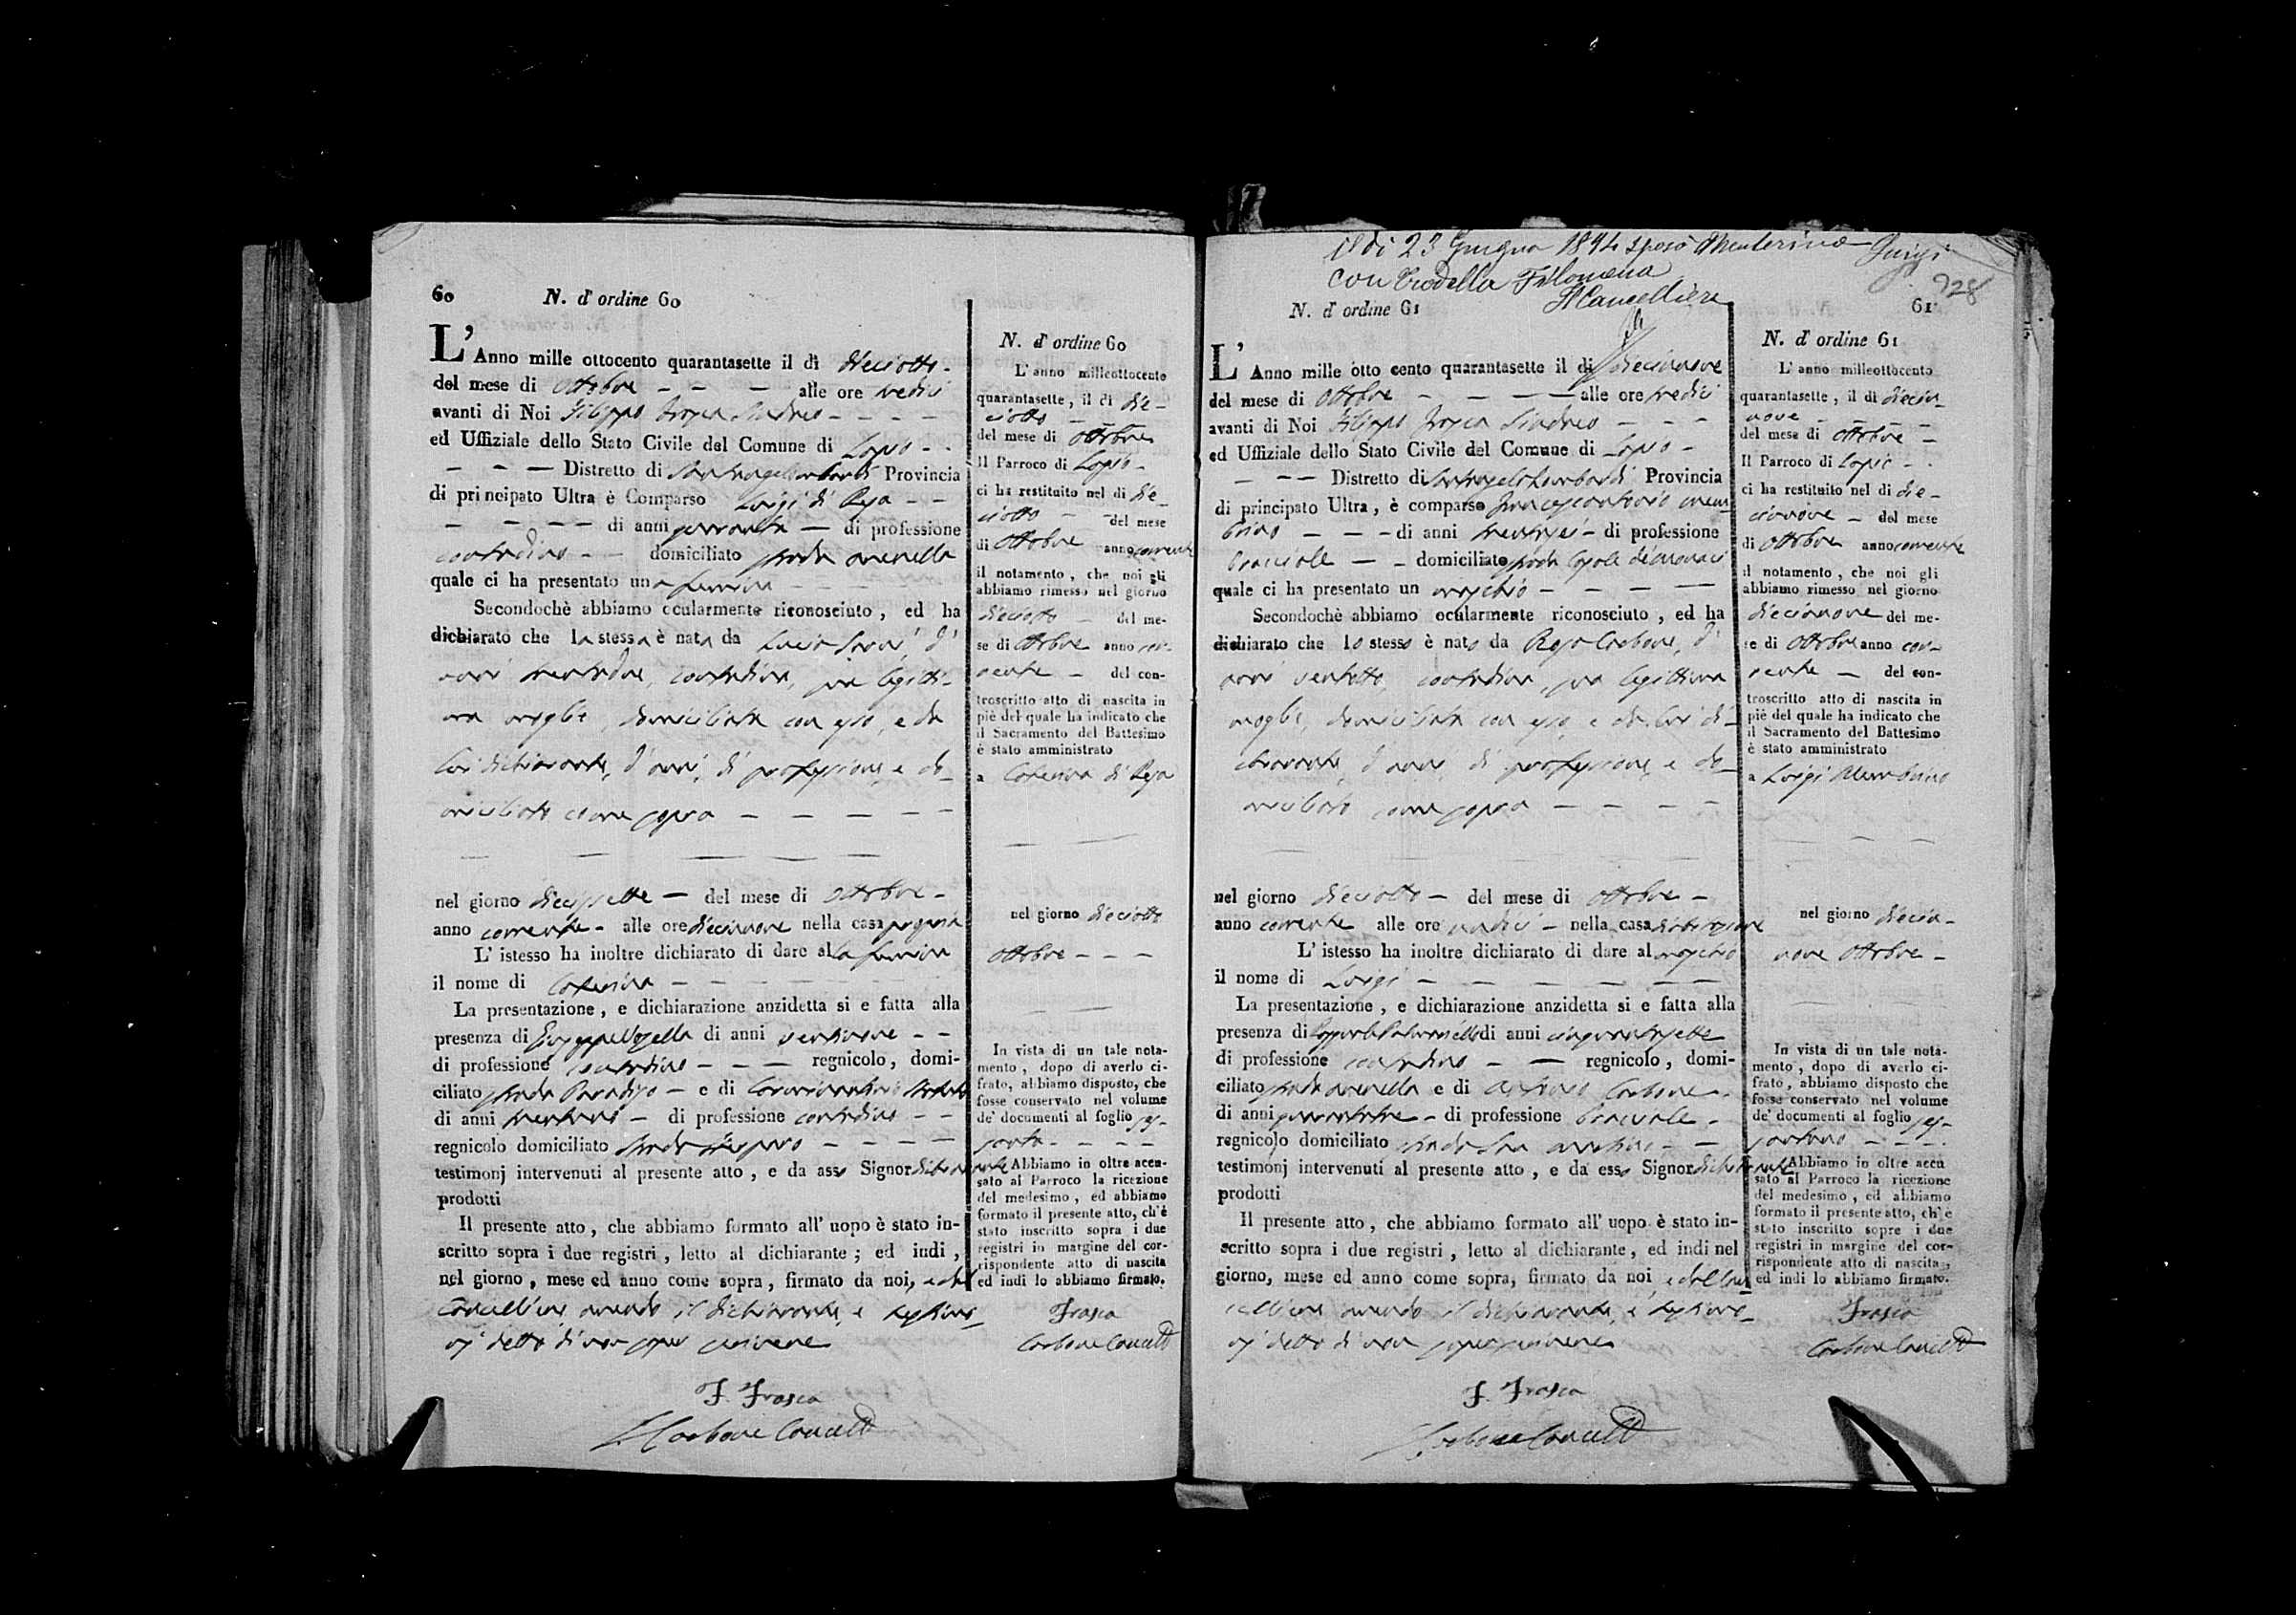 60
N. d' ordine 60
L' Anno mille ottocento quarantasette il di dieciotto -
del mese di Ottobre - - - alle ore tredici
avanti di Noi Filippo Frasca Sindaco - - - -
ed Uffiziale dello Stato Civile del Comune di Lapio - -
- - - Distretto di Santangelo Lombardi Provincia
di principato Ultra è Comparso Luigi di Reja - -
- - - - di anni quaranta - di professione
contadino - - domiciliato strada arenella
quale ci ha presentato una femina
Secondochè abbiamo ocularmente riconosciuto, ed ha
dichiarato che la stessa è nata da Lucia d'
anni trentadue, contadina, sua legitti-
ma moglie, domiciliata con esso, e da
lui dichiarante, d'anni, di professione, e do-
miciliato come sopra - - - - -
nel giorno diecissette - del mese di Ottobre -
anno corrente - alle ore diecinnove nella casa propria
L' istesso ha inoltre dichiarato di dare alla femina
il nome di Caterina - - - -
La presentazione, e dichiarazione anzidetta si e fatta alla
presenza di Giuseppe di anni ventinove - -
di professione contadino - - - regnicolo, domi-
ciliato strada Paradiso - e di
di anni - di professione contadino - -
regnicolo domiciliato strada - - - -
testimonj intervenuti al presente atto, e da asso Signor dichiarante
prodotti
Il presente atto, che abbiamo formato all' uopo è stato in-
scritto sopra i due registri, letto al dichiarante; ed indi,
nel giorno, mese ed anno come sopra, firmato da noi, e dal
Cancelliere avendo il dichiarante, e testimo-
nj detto di non saper scrivere
F. Frasca
Carbone Cancell
N. d' ordine 60
L' anno milleottocento
quarantasette, il di die-
ciotto - -
del mese di Ottobre
Il Parroco di Lapio -
ci ha restituito nel di die-
ciotto - - del mese
di Ottobre anno corrente
il notamento, che noi gli
abbiamo rimesso nel giorno
dieciotto - del me-
se di Ottobre anno cor-
rente - del con-
troscritto atto di nascita in
piè del quale ha indicato che
il Sacramento del Battesimo
è stato amministrato
a Caterina di Reja
nel giorno dieciotto
Ottobre - - -
In vista di un tale nota-
mento, dopo di averlo ci-
frato, abbiamo disposto, che
fosse conservato nel volume
de' documenti al foglio ses-
santa - - - -
Abbiamo in oltre accu-
sato al Parroco la ricezione
del medesimo, ed abbiamo
formato il presente atto, ch'è
stato inscritto sopra i due
registri in margine del cor-
rispondente atto di nascita
ed indi lo abbiamo firmato.
Frasca
Carbone Cancell
Il di 23 Giugno sposò Luigi
con Filomena
Il Cancelliere
928
N. d' ordine 61
61
L' Anno mille otto cento quarantasette il di diecinnove
del mese di Ottobre - - - - alle ore tredici
avanti di Noi Filippo Frasca Sindaco - - -
ed Uffiziale dello Stato Civile del Comune di Lapio -
- - - Distretto di Santangelo Lombardi Provincia
di principato Ultra, è comparso
- - - di anni trentasei - di professione
bracciale - - domiciliato strada
quale ci ha presentato un maschio - - - -
Secondochè abbiamo ocularmente riconosciuto, ed ha
dichiarato che lo stesso è nato da Rosa Carbone, d'
anni ventotto, contadina, sua legittima
moglie, domiciliata con esso, e da lui di-
chiarante, d'anni, di professione, e do-
miciliato come sopra - - - -
nel giorno dieciotto - del mese di Ottobre -
anno corrente alle ore undici - nella casa d'abitazione
L' istesso ha inoltre dichiarato di dare al maschio
il nome di Luigi - - - - - -
La presentazione, e dichiarazione anzidetta si e fatta alla
presenza di di anni cinquantasette
di professione contadino - - regnicolo, domi-
ciliato strada arenella e di Carbone -
di anni quarantatre - di professione bracciale -
regnicolo domiciliato strada - -
testimonj intervenuti al presente atto, e da esso Signor dichiarante
prodotti
Il presente atto, che abbiamo formato all' uopo è stato in-
scritto sopra i due registri, letto al dichiarante, ed indi nel
giorno, mese ed anno come sopra, firmato da noi, e dal Can-
celliere avendo il dichiarante, e testimo-
nj detto di non saper scrivere
F. Frasca
Carbone Cancell
N. d' ordine 61
L' anno milleottocento
quarantasette, il di diecin-
nove - - -
del mese di Ottobre -
Il Parroco di Lapio - -
ci ha restituito nel di die-
cinnove - del mese
di Ottobre anno corrente
il notamento, che noi gli
abbiamo rimesso nel giorno
diecinnove del me-
se di Ottobre anno cor-
rente - del con-
troscritto atto di nascita in
piè del quale ha indicato che
il Sacramento del Battesimo
è stato amministrato
a Luigi
nel giorno diecin-
nove Ottobre -
In vista di un tale nota-
mento, dopo di averlo ci-
frato, abbiamo disposto che
fosse conservato nel volume
de' documenti al foglio ses-
santuno - - -
Abbiamo in oltre accu
sato al Parroco la ricezione
del medesimo, ed abbiamo
formato il presente atto, ch'è
stato inscritto sopre i due
registri in margine del cor-
rispondente atto di nascita,
ed indi lo abbiamo firmato.
Frasca
Carbone Cancell